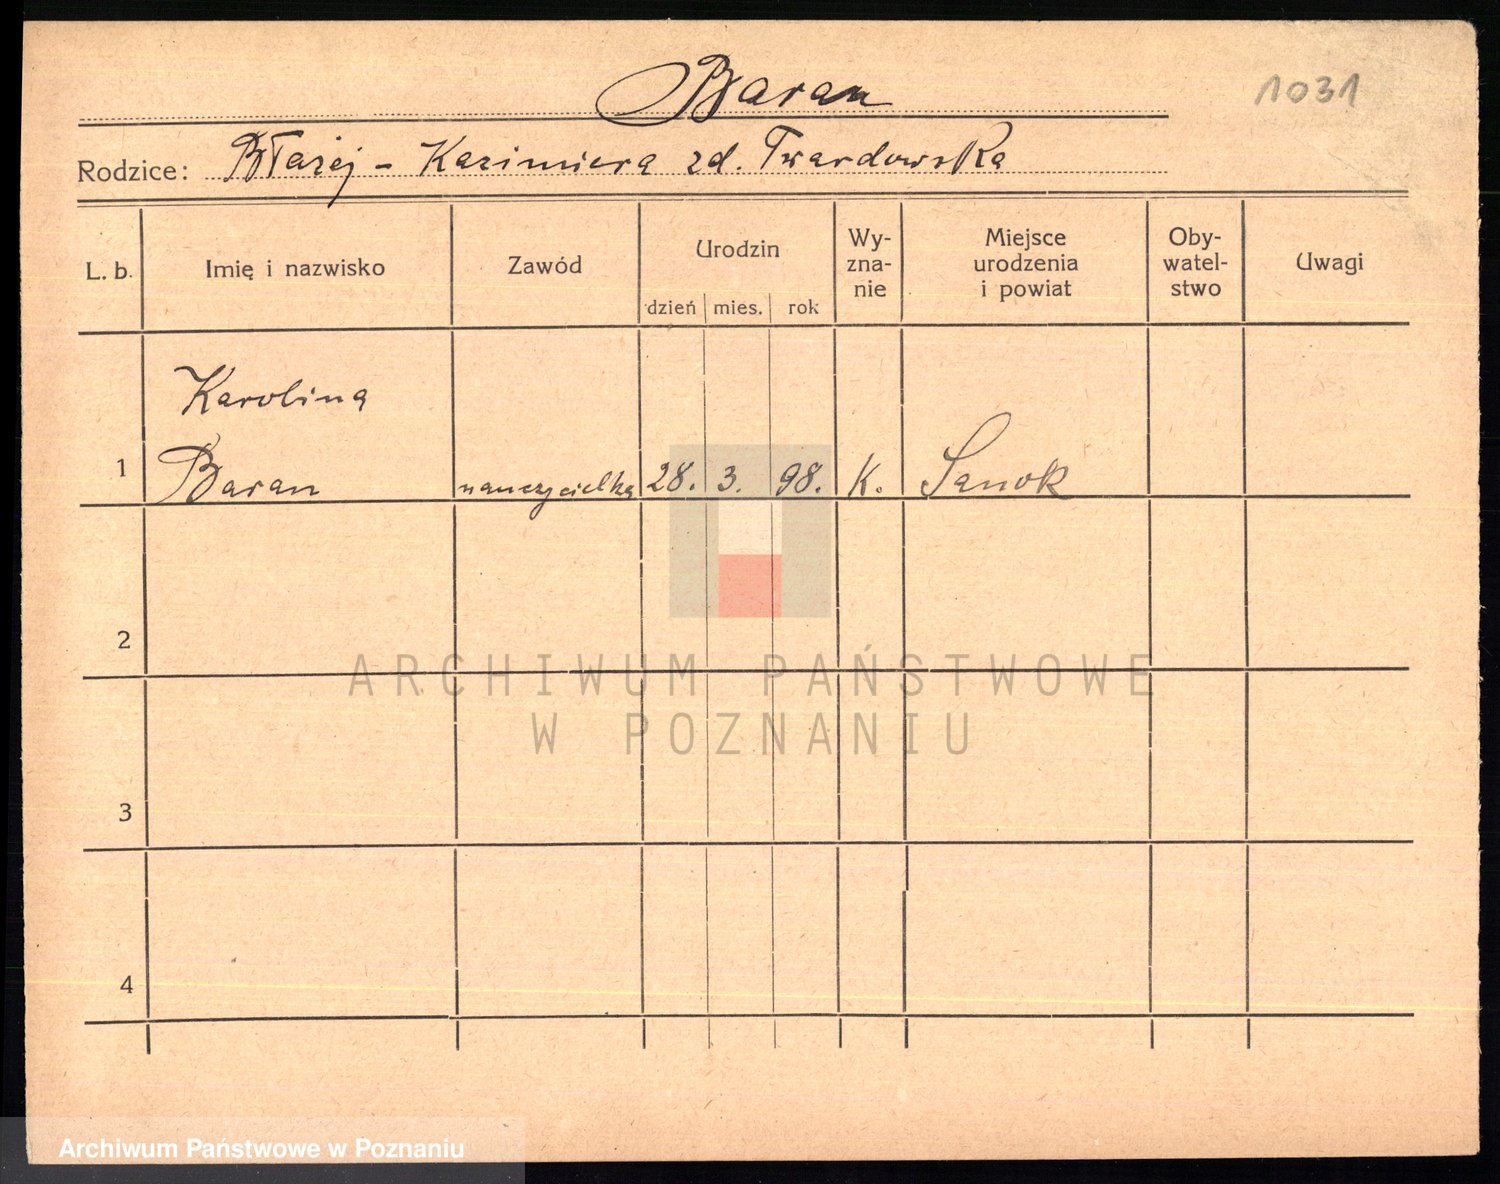 Baran
1031
Rodzice: Błażej - Kazimiera zd. Twardowska
L. b. Imię i nazwisko Zawód Urodzin Wy-zna-nie Miejsce urodzenia i powiat Oby-watel-stwo Uwagi
dzień mies. rok
Karolina
1 Baran nauczycielka 28. 3. 98. K. Sanok
2
ARCHIWUM PAŃSTWOWE
W POZNANIU
3
4
Archiwum Państwowe w Poznaniu